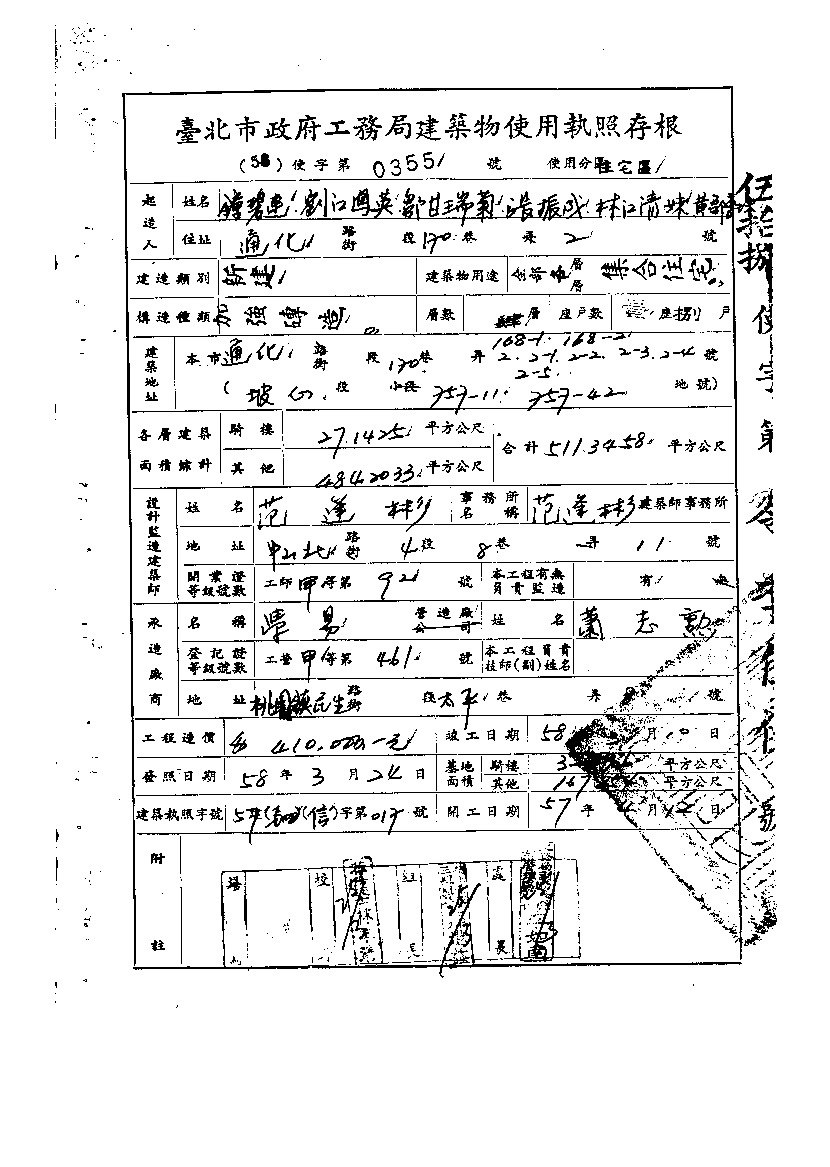 臺北市政府工務局建築物使用執照存根
(58) 使字第 0355 號 使用分區 住宅區
起造人 姓名 鍾碧連 劉江鳳英 鄒甘瑞菊 張振成 林江清妹
住址 通化 路街 段 170 巷 弄 2 號
建造類別 新建 建築物用途 全部 層層 集合住宅
構造種類 加強磚造 層數 肆層 座戶數 壹座捌戶
168-1. 168-2.
建築地址 本市 通化 路街 段 170 巷 弄 2. 2-1. 2-2. 2-3. 2-4 號
2-5.
( 坡心 段 小段 357-11 357-42 地號)
各層建築面積總計 騎樓 27.1425 平方公尺 合計 511.3458 平方公尺
其他 484.2033 平方公尺
設計監造建築師 姓名 范蓮彬 事務所名稱 范蓮彬 建築師事務所
地址 中山北 路街 4 段 8 巷 弄 11 號
開業證等級號數 工師 甲 等第 92 號 本工程有無負責監造 有 無
承造廠商 名稱 學易 營造廠公司 姓名 蕭志
登記證等級號數 工營 甲 等第 461 號 本工程負責技師(副)姓名
地址 桃園鎮民生 路街 段 太平 巷 弄 號
工程造價 410,000.-元 竣工日期 58 月 日
發照日期 58 年 3 月 24 日 基地面積 騎樓 平方公尺
其他 平方公尺
建築執照字號 57 (信)字第 017 號 開工日期 57 年 4 月 12 日
附註
組 處
長
伍拾捌使字第零 號